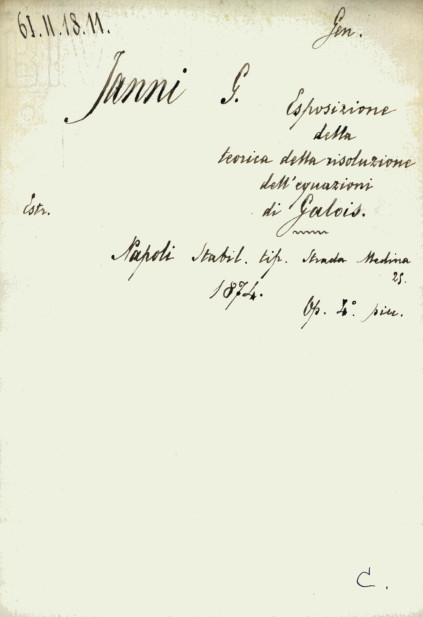 61.II.18.11.
Gen.
Janni G.
Esposizione
della
teorica della risoluzione
dell'equazioni
di Galois.
Estr.
Napoli Stabil. tip. Strada Medina
25.
1874.
Op. 4°. picc.
C.